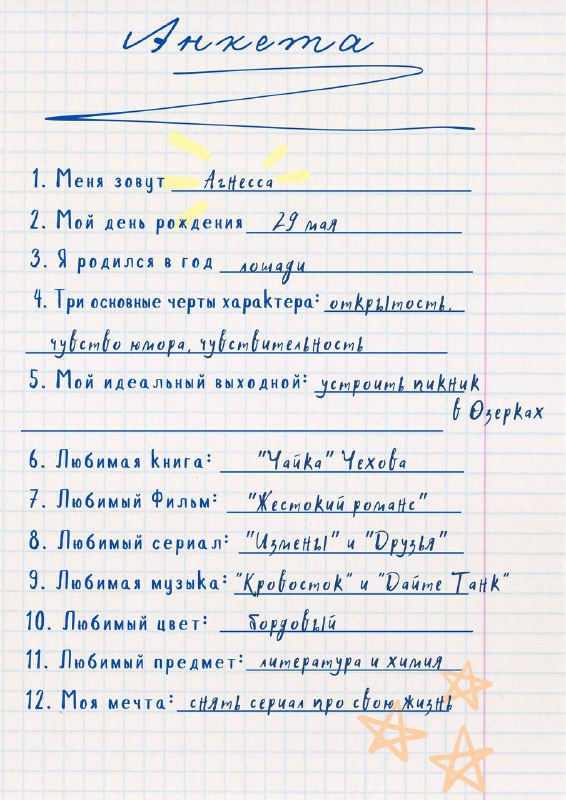 Анкета
1. Меня зовут Агнесса
2. Мой день рождения 29 мая
3. Я родился в год лошади
4. Три основные черты характера: открытость,
чувство юмора, чувствительность
5. Мой идеальный выходной: устроить пикник
в Озерках
6. Любимая книга: "Чайка" Чехова
7. Любимый Фильм: "Жестокий романс"
8. Любимый сериал: "Измены" и "Друзья"
9. Любимая музыка: "Кровосток" и "Дайте Танк"
10. Любимый цвет: бордовый
11. Любимый предмет: литература и химия
12. Моя мечта: снять сериал про свою жизнь